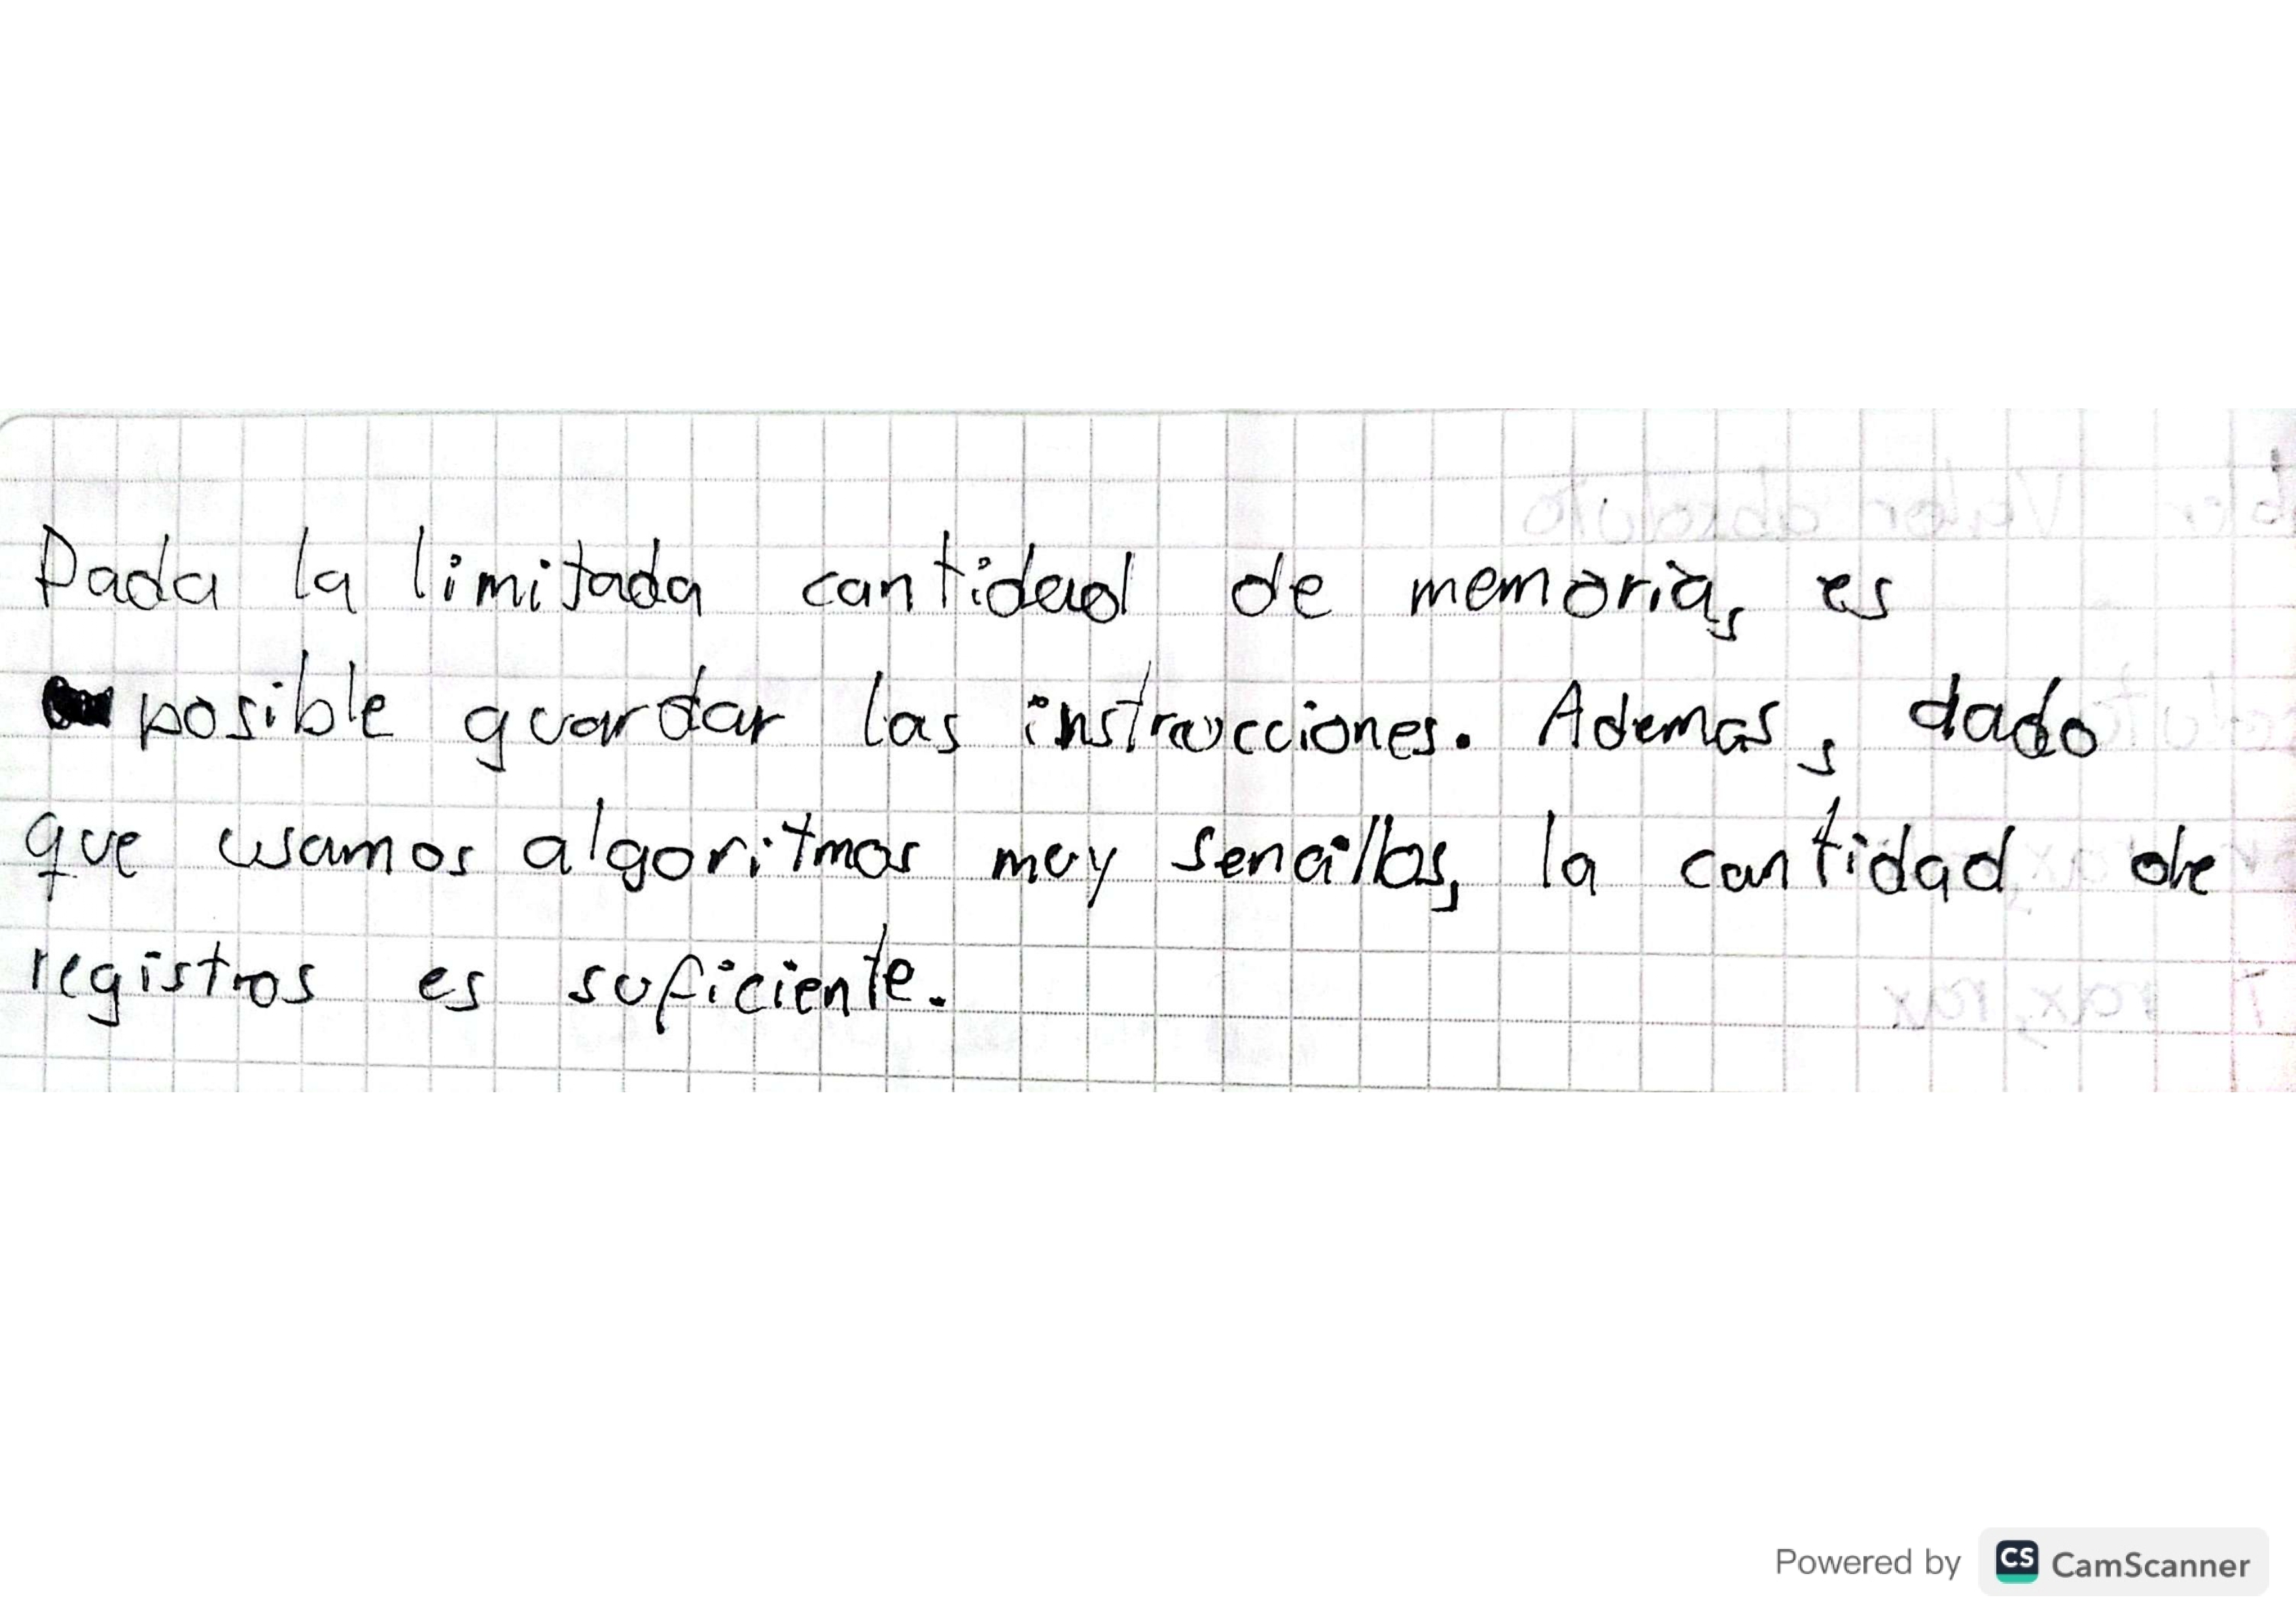 Dada la limitada cantidad de memoria, es
posible guardar las instrucciones. Ademas, dado
que usamos algoritmos muy sencillos, la cantidad de
registros es suficiente.
Powered by CS CamScanner